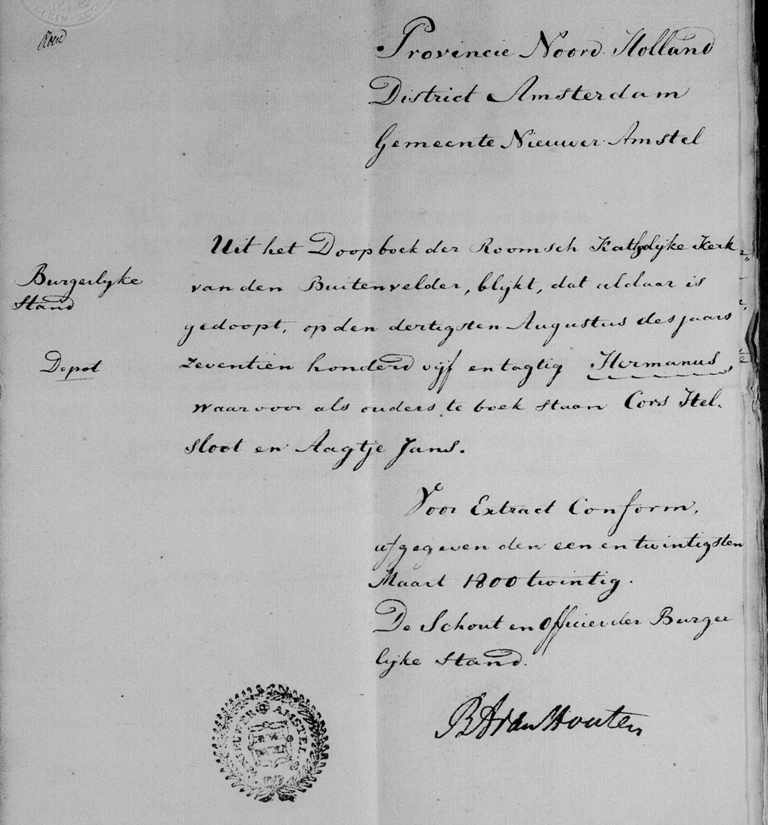 Provincie Noord-Holland
District Amsterdam
Gemeente Nieuwer-Amstel
Uit het Doopboek der Roomsch Katholijke Kerk
van den Buitenvelder, blykt, dat aldaar is
gedoopt, op den dertigsten Augustus des jaars
zeventien honderd vijf en tagtig Hermanus,
waarvoor als ouders te boek staan Cors Hel-
sloot en Aagtje Jans.
Burgerlyke
Stand
Depot
Voor Extract Conform,
afgegeven den een en twintigsten
Maart 1800 twintig.
De Schout en Officier der Burger
lijke Stand.
van Houten
NIEUWER AMSTEL